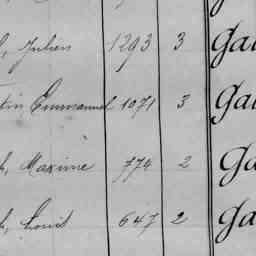 Julien 1293 3 Ga
tin, Emmanuel 1071 3 Ga
h, Maxime 774 2 Ga
h, Louis 647 2 Ga